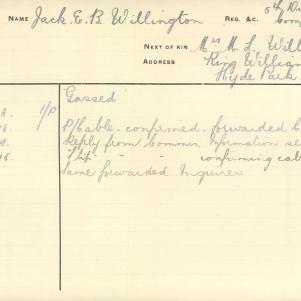 NAME Jack. E. B. Willington REG. &C. 5th Div
NEXT OF KIN Mrs M. L. Will
ADDRESS King William
Hyde Park
Gassed
8. I/P P/Cable - confirmed - forwarded
Reply from Commrs. Information
" " confirming cab
Same forwarded Inquirer